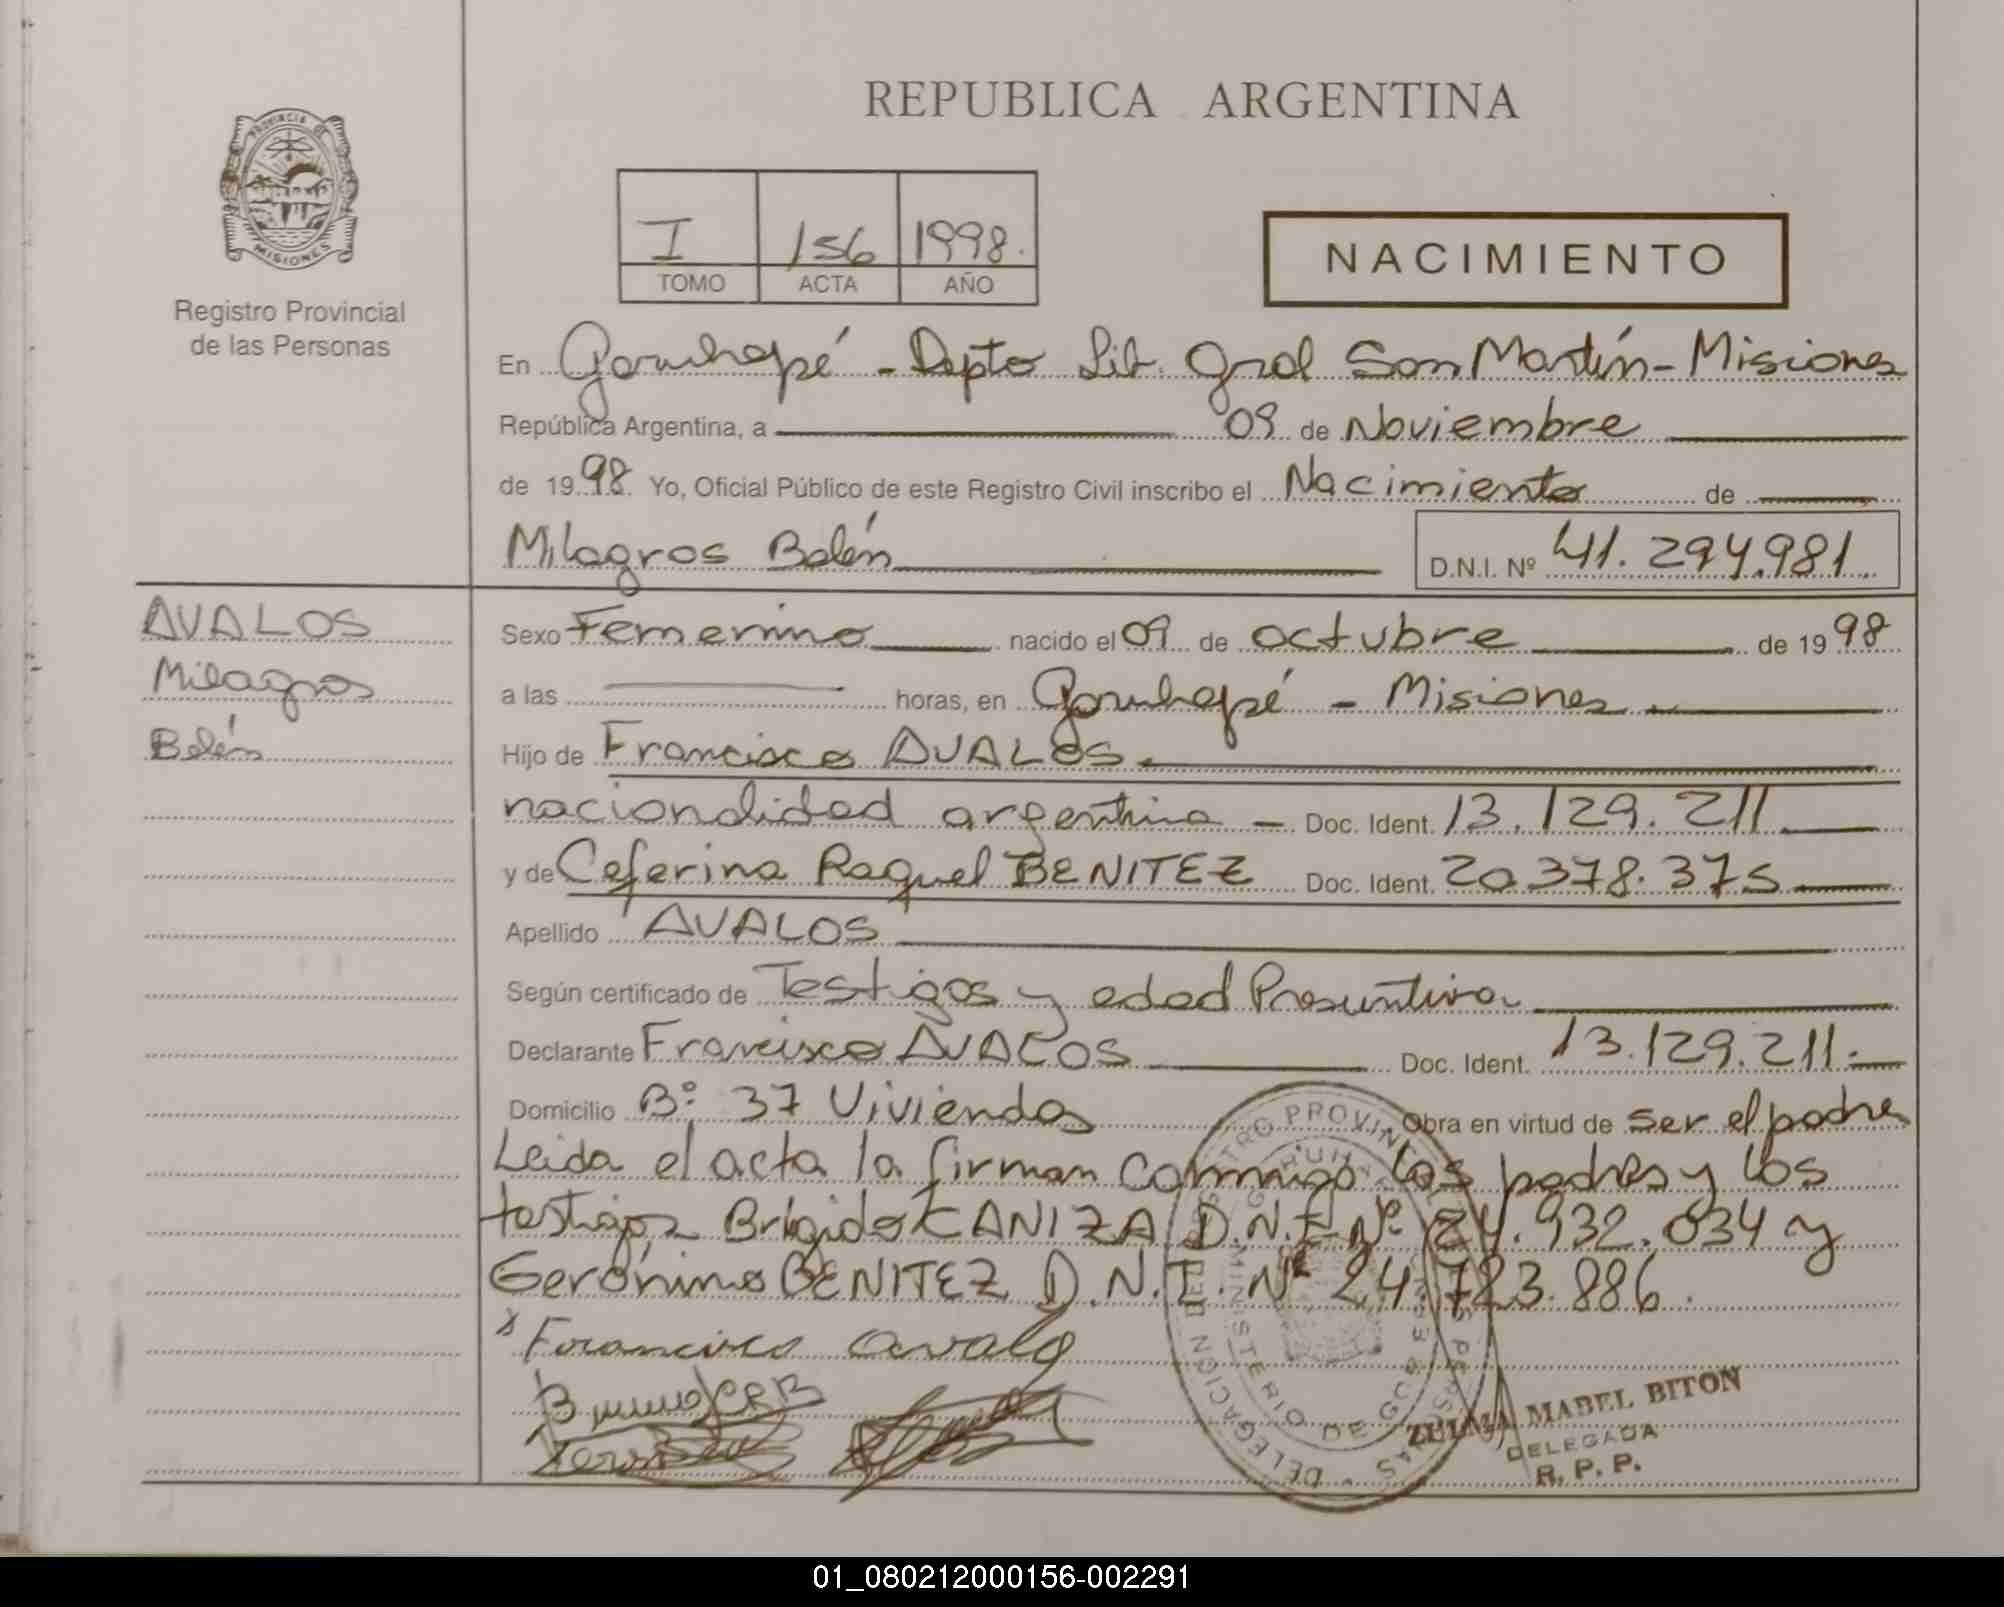 REPUBLICA ARGENTINA
PROVINCIA DE
MISIONES
Registro Provincial
de las Personas
I 156 1998.
TOMO ACTA AÑO
NACIMIENTO
En Garuhapé - Depto Lib. Gral San Martín - Misiones
República Argentina, a 09 de Noviembre
de 1998. Yo, Oficial Público de este Registro Civil inscribo el Nacimiento de
Milagros Belén
D.N.I. Nº 41.294.981
AVALOS
Milagros
Belén
Sexo Femenino nacido el 09 de octubre de 1998
a las horas, en Garuhapé - Misiones
Hijo de Francisco AVALOS
nacionalidad argentina - Doc. Ident. 13.129.211
y de Ceferina Raquel BENITEZ Doc. Ident. 20.378.375
Apellido AVALOS
Según certificado de Testigos y edad Presuntiva
Declarante Francisco AVALOS Doc. Ident. 13.129.211.
Domicilio B° 37 Viviendas Obra en virtud de ser el padre
Leida el acta la firman conmigo los padres y los
testigos Brigido CANIZA D.N.I. Nº 24.932.034 y
Gerónimo BENITEZ D.N.I. Nº 24.723.886.
x Francisco Avalo
ZULMA MABEL BITON
DELEGADA
R. P. P.
01_080212000156-002291